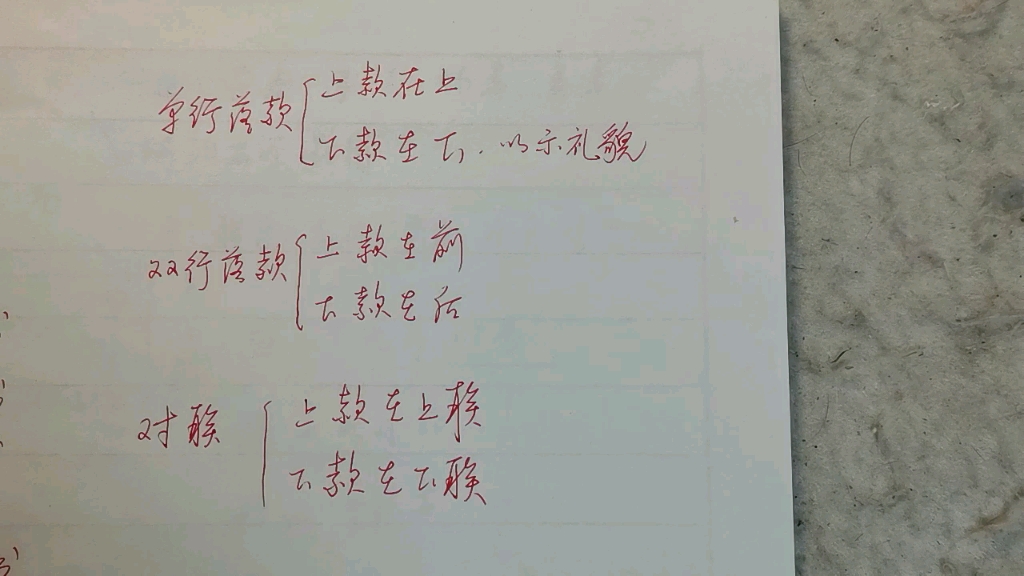 单行落款
上款在上
下款在下，以示礼貌
双行落款
上款在前
下款在后
对联
上款在上联
下款在下联